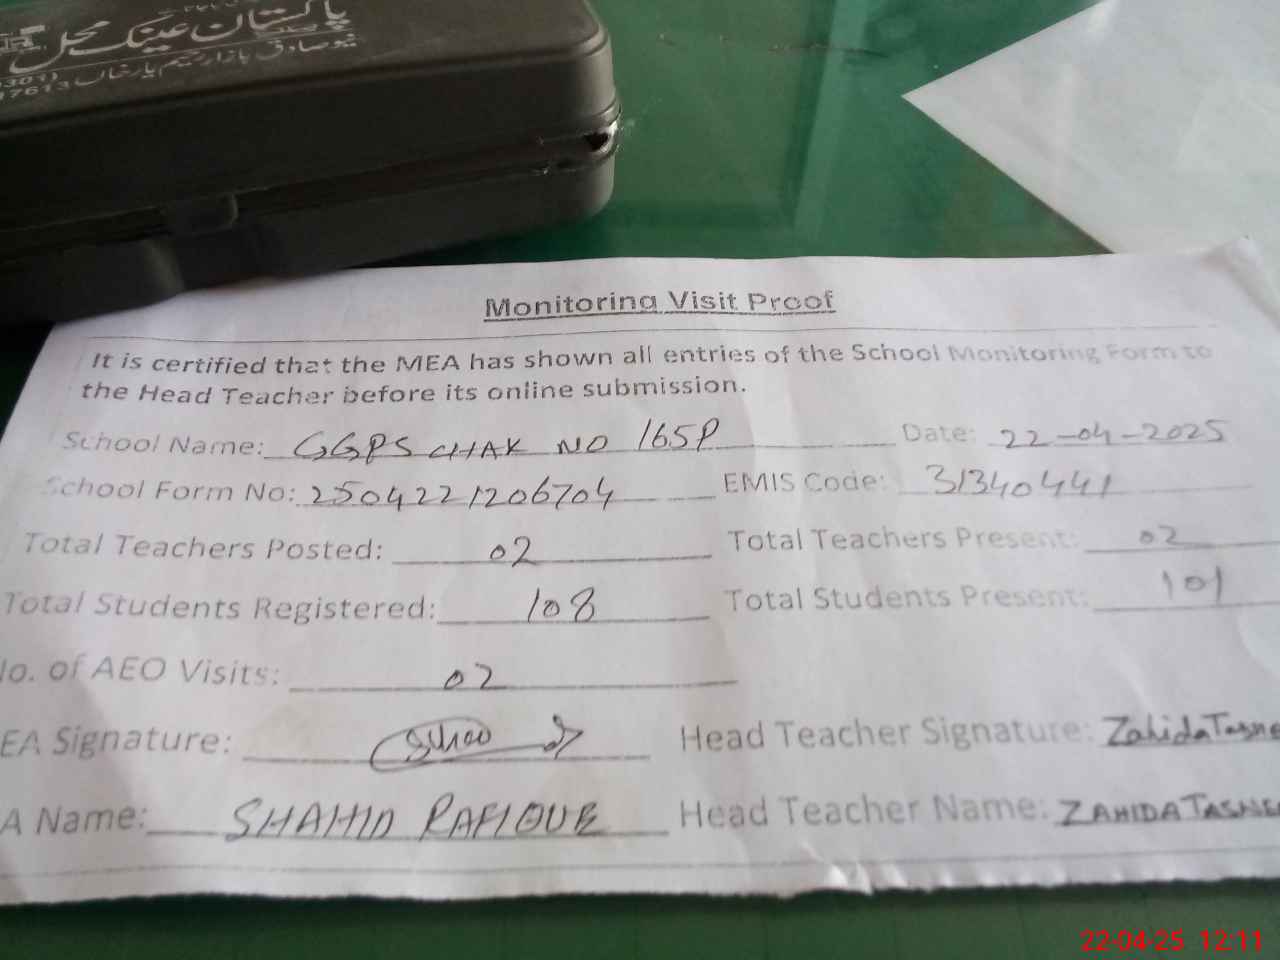 پاکستان عینک محل
نیو صادق بازار رحیم یار خان
Monitoring Visit Proof
It is certified that the MEA has shown all entries of the School Monitoring Form to
the Head Teacher before its online submission.
School Name: GGPS CHAK NO 165P Date: 22-04-2025
School Form No: 2504221206704 EMIS Code: 31340441
Total Teachers Posted: 02 Total Teachers Present: 02
Total Students Registered: 108 Total Students Present: 101
No. of AEO Visits: 02
EA Signature: Head Teacher Signature: Zahida Tasne
A Name: SHAHID RAFIQUE Head Teacher Name: ZAHIDA TASNE
22-04-25 12:11